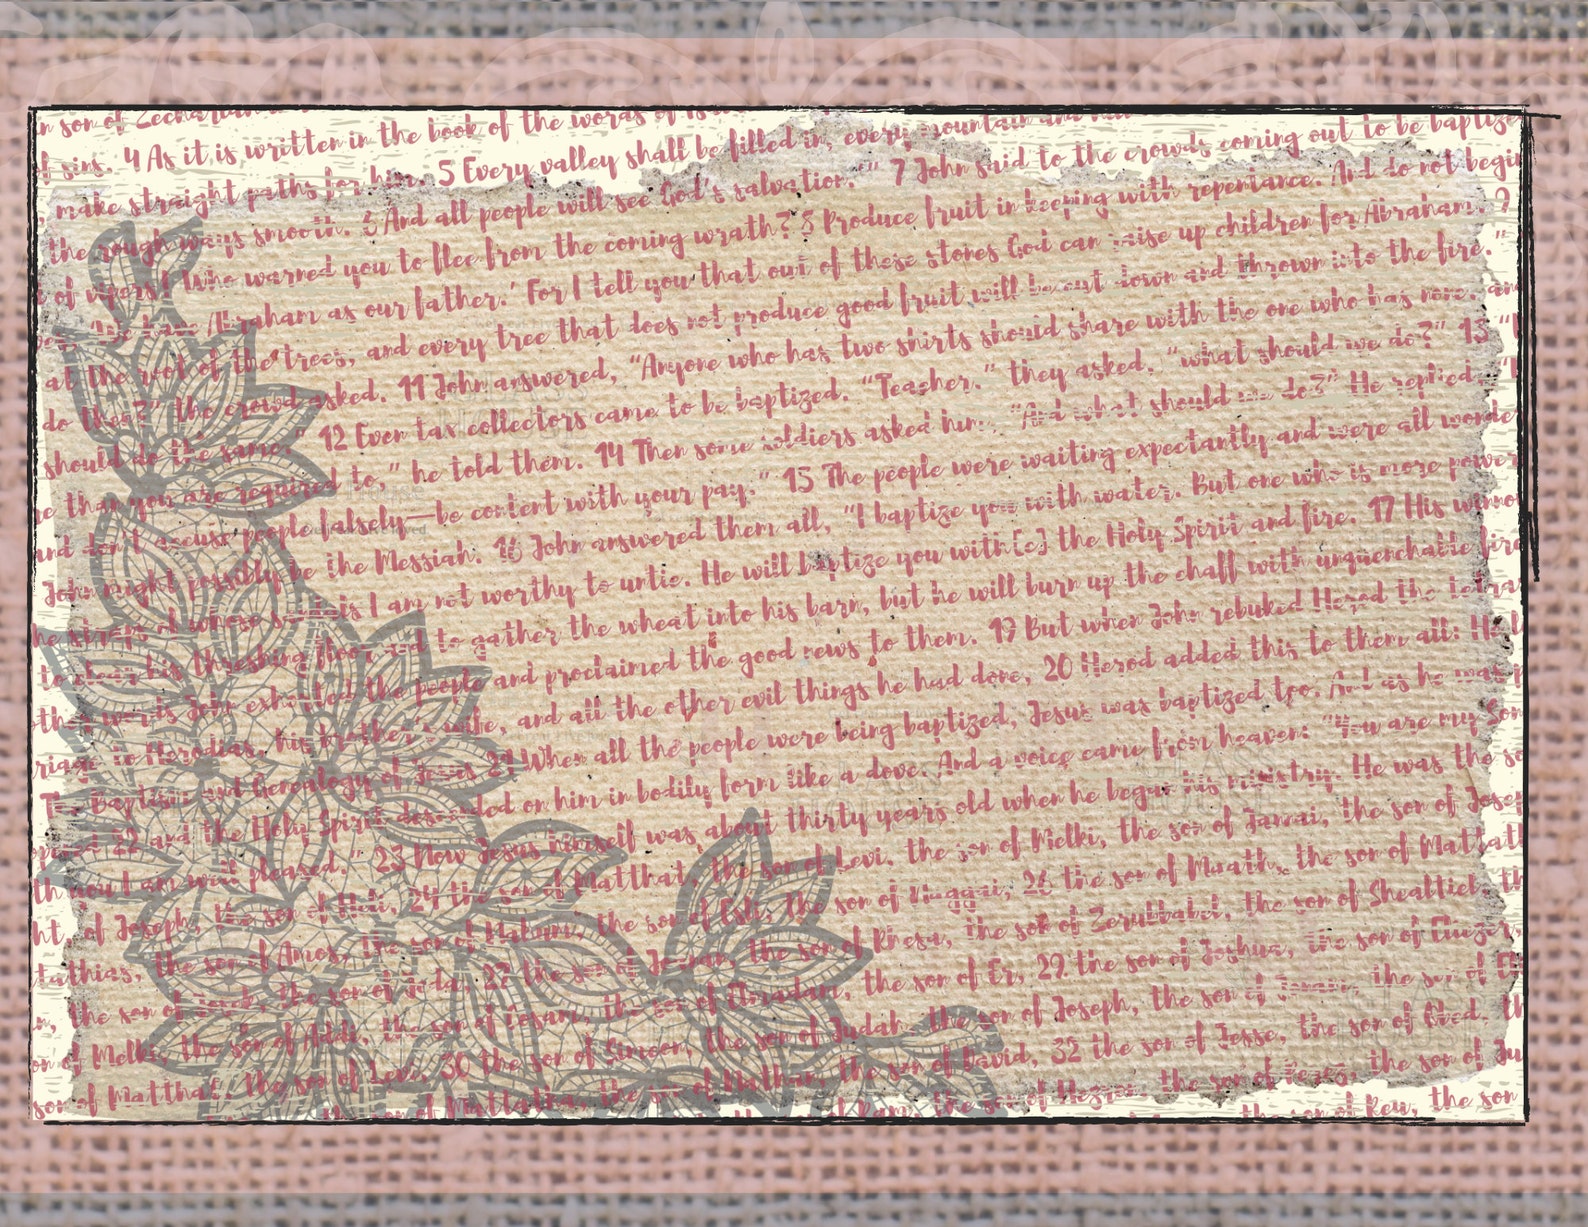 n son of Zechariah
of sins. 4 As it is written in the book of the words of
make straight paths for him. 5 Every valley shall be filled in, every mountain and
the rough ways smooth. 6 And all people will see God's salvation.'" 7 John said to the crowds coming out to be baptize
of vipers! Who warned you to flee from the coming wrath? 8 Produce fruit in keeping with repentance. And do not begin
have Abraham as our father.' For I tell you that out of these stones God can raise up children for Abraham. 9
at the root of the trees, and every tree that does not produce good fruit will be cut down and thrown into the fire."
do then?" the crowd asked. 11 John answered, "Anyone who has two shirts should share with the one who has none, and
should do the same." 12 Even tax collectors came to be baptized. "Teacher," they asked, "what should we do?" 13 "
e than you are required to," he told them. 14 Then some soldiers asked him, "And what should we do?" He replied, "
and don't accuse people falsely—be content with your pay." 15 The people were waiting expectantly and were all wonde
John might possibly be the Messiah. 16 John answered them all, "I baptize you with water. But one who is more power
he straps of whose sandals I am not worthy to untie. He will baptize you with[c] the Holy Spirit and fire. 17 His winno
to clear his threshing floor and to gather the wheat into his barn, but he will burn up the chaff with unquenchable fire
other words John exhorted the people and proclaimed the good news to them. 19 But when John rebuked Herod the tetrar
riage to Herodias, his brother's wife, and all the other evil things he had done, 20 Herod added this to them all: He l
The Baptism and Genealogy of Jesus 21 When all the people were being baptized, Jesus was baptized too. And as he was p
opened 22 and the Holy Spirit descended on him in bodily form like a dove. And a voice came from heaven: "You are my Son
th you I am well pleased." 23 Now Jesus himself was about thirty years old when he began his ministry. He was the so
ht, of Joseph, the son of Heli, 24 the son of Matthat, the son of Levi, the son of Melki, the son of Jannai, the son of Josep
tathias, the son of Amos, the son of Nahum, the son of Esli, the son of Naggai, 26 the son of Maath, the son of Mattath
n, the son of Josek, the son of Joda, 27 the son of Joanan, the son of Rhesa, the son of Zerubbabel, the son of Shealtiel, th
on of Melki, the son of Addi, the son of Cosam, the son of Elmadam, the son of Er, 29 the son of Joshua, the son of Eliezer,
son of Matthat, the son of Levi, 30 the son of Simeon, the son of Judah, the son of Joseph, the son of Jonam, the son of El
the son of Mattatha, the son of Nathan, the son of David, 32 the son of Jesse, the son of Obed, th
the son of Ram, the son of Hezron, the son of Perez, the son of Ju
the son of Reu, the son